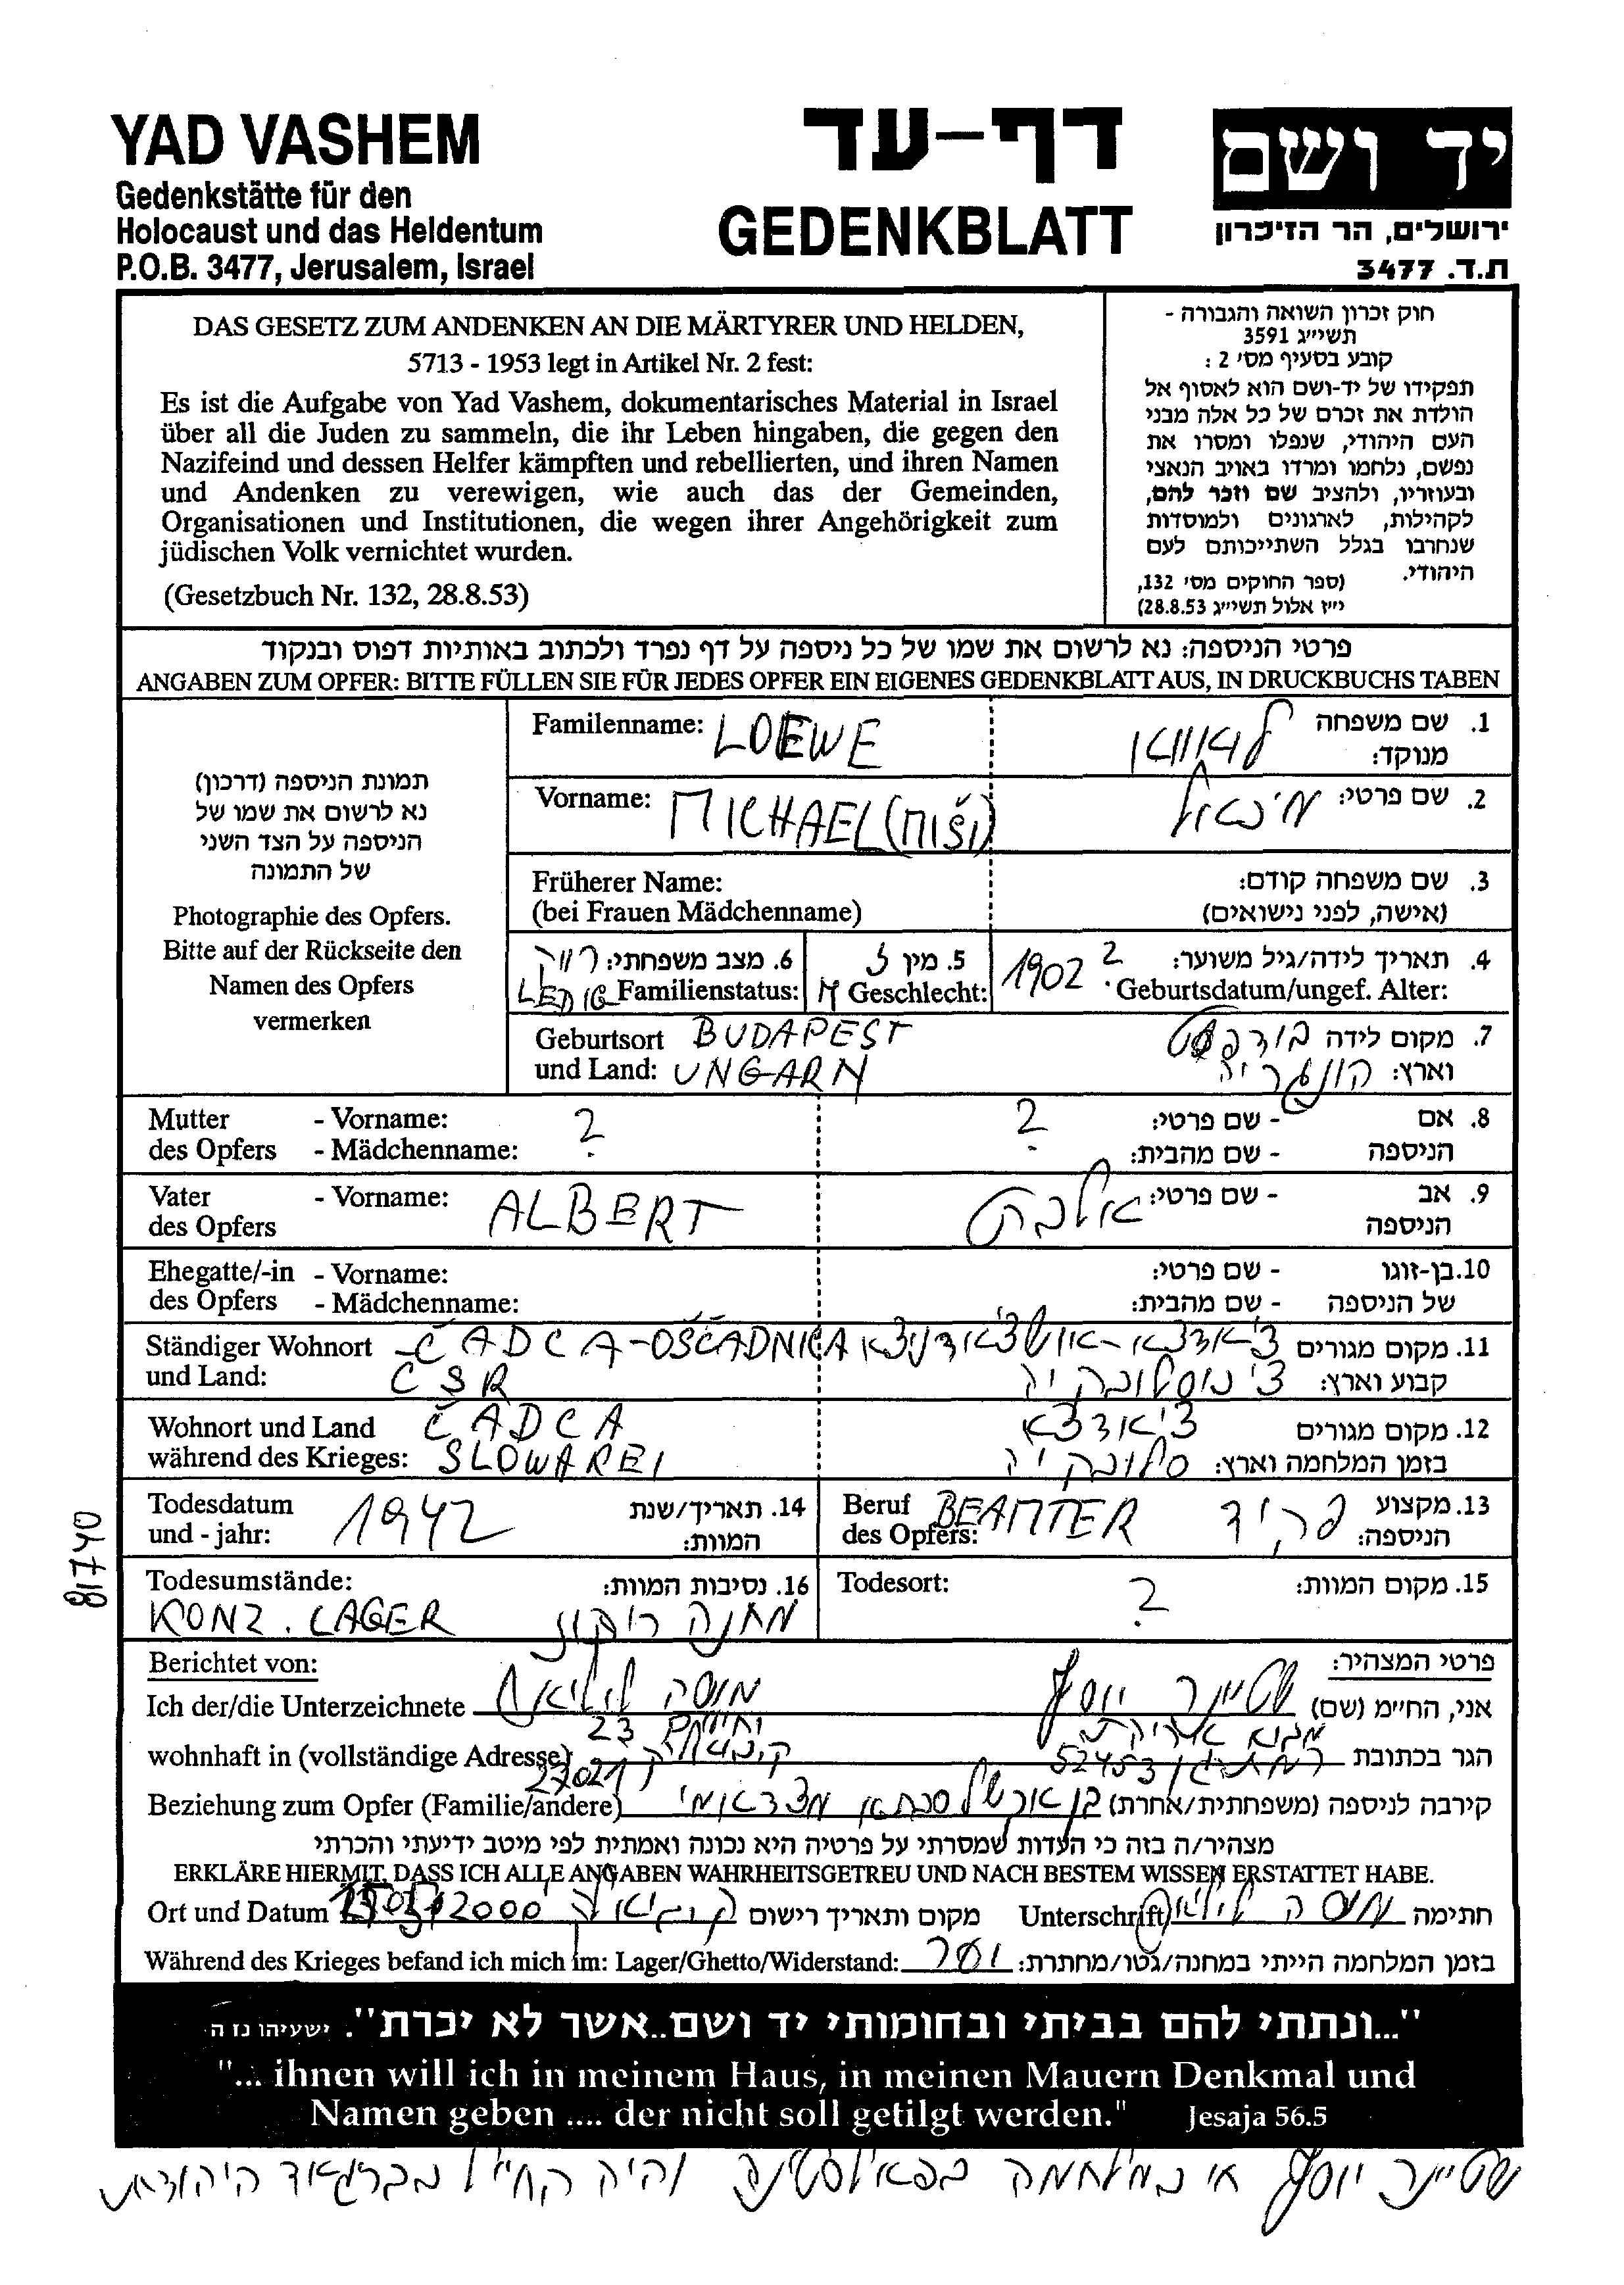 YAD VASHEM
Gedenkstätte für den
Holocaust und das Heldentum
P.O.B. 3477, Jerusalem, Israel
דף-עד
GEDENKBLATT
יד ושם
ירושלים, הר הזיכרון
ת.ד. 3477
DAS GESETZ ZUM ANDENKEN AN DIE MÄRTYRER UND HELDEN,
5713 - 1953 legt in Artikel Nr. 2 fest:
Es ist die Aufgabe von Yad Vashem, dokumentarisches Material in Israel
über all die Juden zu sammeln, die ihr Leben hingaben, die gegen den
Nazifeind und dessen Helfer kämpften und rebellierten, und ihren Namen
und Andenken zu verewigen, wie auch das der Gemeinden,
Organisationen und Institutionen, die wegen ihrer Angehörigkeit zum
jüdischen Volk vernichtet wurden.
(Gesetzbuch Nr. 132, 28.8.53)
חוק זכרון השואה והגבורה -
תשי״ג 3591
קובע בסעיף מס׳ 2 :
תפקידו של יד-ושם הוא לאסוף אל
הולדת את זכרם של כל אלה מבני
העם היהודי, שנפלו ומסרו את
נפשם, נלחמו ומרדו באויב הנאצי
ובעוזריו, ולהציב שם וזכר להם,
לקהילות, לארגונים ולמוסדות
שנחרבו בגלל השתייכותם לעם
היהודי. (ספר החוקים מס׳ 132,
י״ז אלול תשי״ג 28.8.53)
פרטי הניספה: נא לרשום את שמו של כל ניספה על דף נפרד ולכתוב באותיות דפוס ובנקוד
ANGABEN ZUM OPFER: BITTE FÜLLEN SIE FÜR JEDES OPFER EIN EIGENES GEDENKBLATT AUS, IN DRUCKBUCHS TABEN
תמונת הניספה (דרכון)
נא לרשום את שמו של
הניספה על הצד השני
של התמונה
Photographie des Opfers.
Bitte auf der Rückseite den
Namen des Opfers
vermerken
Familenname: LOEWE
1. שם משפחה
מנוקד:
Vorname: MICHAEL (MIŠI)
2. שם פרטי: מיכאל
Früherer Name:
(bei Frauen Mädchenname)
3. שם משפחה קודם:
(אישה, לפני נישואים)
4. תאריך לידה/גיל משוער:
Geburtsdatum/ungef. Alter: 1902 ?
5. מין ז
Geschlecht: M
6. מצב משפחתי: רווק
Familienstatus: LEDIG
Geburtsort BUDAPEST
und Land: UNGARN
7. מקום לידה בודפשט
וארץ: הונגריה
Mutter - Vorname: ?
des Opfers - Mädchenname:
8. אם - שם פרטי: ?
הניספה - שם מהבית:
Vater - Vorname: ALBERT
des Opfers
9. אב - שם פרטי: אלברט
הניספה
Ehegatte/-in - Vorname:
des Opfers - Mädchenname:
10. בן-זוגו - שם פרטי:
של הניספה - שם מהבית:
Ständiger Wohnort ČADCA-OŠČADNICA
und Land: ČSR
11. מקום מגורים צ׳אדצא-אושצ׳אדניצא
קבוע וארץ: צ׳כוסלובקיה
Wohnort und Land ČADCA
während des Krieges: SLOWAKEI
12. מקום מגורים צ׳אדצא
בזמן המלחמה וארץ: סלובקיה
Todesdatum
und - jahr: 1942
14. תאריך/שנת
המוות:
Beruf BEAMTER
des Opfers:
13. מקצוע פקיד
הניספה:
Todesumstände:
KONZ. LAGER
16. נסיבות המוות:
מחנה ריכוז
Todesort: ?
15. מקום המוות:
Berichtet von:
פרטי המצהיר:
Ich der/die Unterzeichnete
שטיינר יוסף
אני, החיימ (שם)
wohnhaft in (vollständige Adresse) 23
27021
52453
הגר בכתובת
Beziehung zum Opfer (Familie/andere)
קירבה לניספה (משפחתית/אחרת) בן אח של סבתא מצד אמי
מצהיר/ה בזה כי העדות שמסרתי על פרטיה היא נכונה ואמתית לפי מיטב ידיעתי והכרתי
ERKLÄRE HIERMIT, DASS ICH ALLE ANGABEN WAHRHEITSGETREU UND NACH BESTEM WISSEN ERSTATTET HABE.
Ort und Datum 2000
מקום ותאריך רישום
Unterschrift
חתימה
Während des Krieges befand ich mich im: Lager/Ghetto/Widerstand:
בזמן המלחמה הייתי במחנה/גטו/מחתרת:
"...ונתתי להם בביתי ובחומותי יד ושם..אשר לא יכרת". ישעיהו נו ה
"... ihnen will ich in meinem Haus, in meinen Mauern Denkmal und
Namen geben .... der nicht soll getilgt werden." Jesaja 56.5
שטיינר יוסף במלחמה והיה
81740